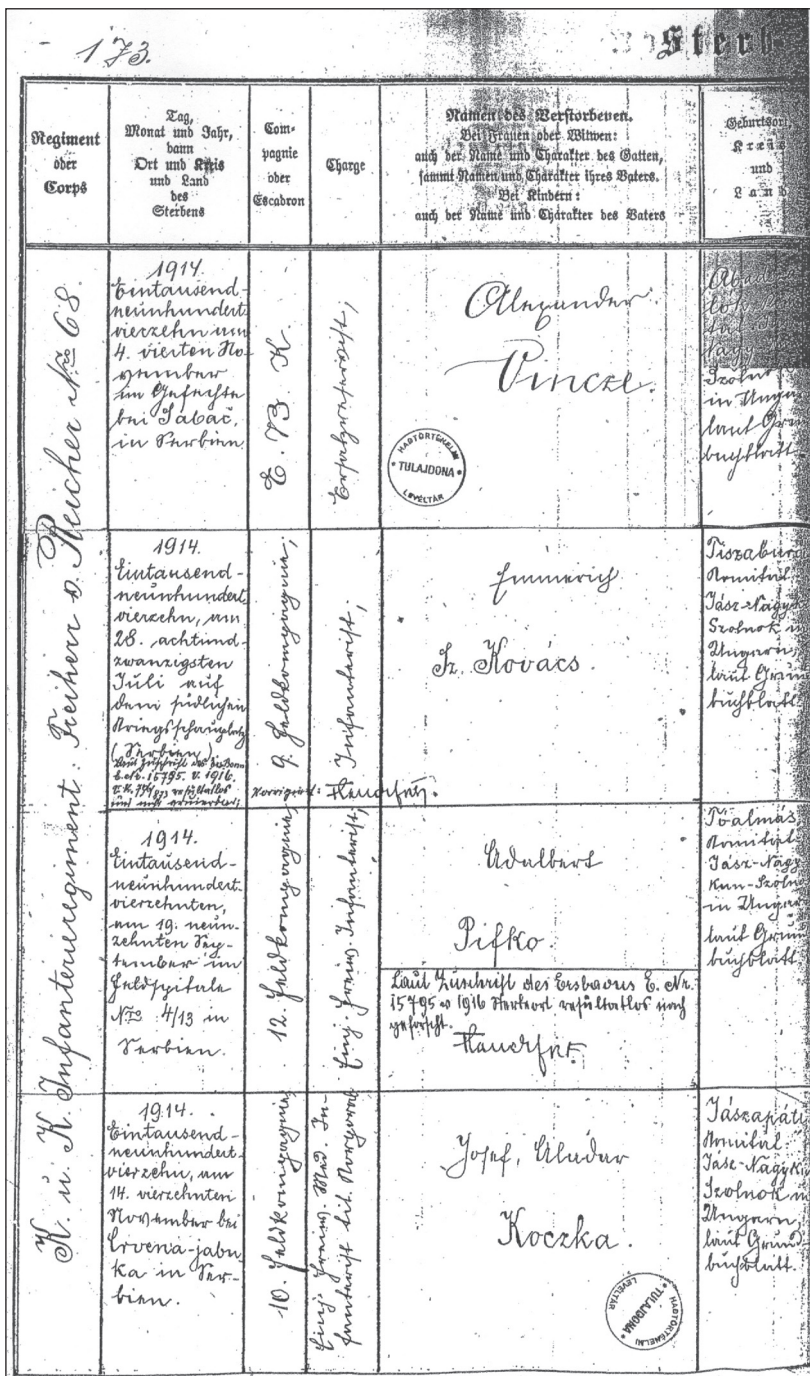 173.
Sterb-
Regiment
oder
Corps
Tag,
Monat und Jahr,
dann
Ort und Kreis
und Land
des
Sterbens
Com-
pagnie
oder
Escadron
Charge
Namen des Verstorbenen.
Bei Frauen oder Witwen:
auch der Name und Charakter des Gatten,
sammt Namen und Charakter ihres Vaters.
Bei Kindern:
auch der Name und Charakter des Vaters
Geburtsort,
Kreis
und
Land
K. u. K. Infanterieregiment: Freiherr v. Reicher No 68.
1914.
Eintausend-
neunhundert
vierzehn am
4. vierten No-
vember
im Gefechte
bei Sabač,
in Serbien
E. 73 K.
Ersatzreservist,
Alexander
Vincze.
HADTÖRTÉNELMI
TULAJDONA
LEVÉLTÁR
Nagy
Szolnok
in Ungarn
laut Grund
buchblatt.
1914.
Eintausend-
neunhundert
vierzehn, am
28. achtund-
zwanzigsten
Juli auf
dem südlichen
Kriegsschauplatz
(Serbien)
15795. v. 1916.
resultatlos
9. Feldkompagnie,
Infanterist,
Korrigiert:
Emmerich
Sz. Kovács.
Tiszabura
Komitat
Jász-Nagyk
Szolnok in
Ungarn,
laut Grund
buchblatt.
1914.
Eintausend-
neunhundert-
vierzehnten,
am 19. neun-
zehnten Sep-
tember im
Feldspitale
No 4/13 in
Serbien.
12. Feldkompagnie,
Einj. Freiw. Infanterist,
Adalbert
Pifko.
Laut Zuschrift des Ersbaons E. Nr.
15795 v 1916 Sterbeort resultatlos nach
geforscht.
Tóalmás,
Komitat
Jász-Nagy
Kun-Szolno
in Ungar
laut Grund
buchblatt
1914.
Eintausend-
neunhundert-
vierzehn, am
14. vierzehnten
November bei
Crvena-jabu-
ka in Ser-
bien.
10. Feldkompagnie,
Einj. Freiw. Med. In-
fanterist tit. Korporal
Josef, Aladar
Koczka.
HADTÖRTÉNELMI
TULAJDONA
LEVÉLTÁR
Jászapáti
Komitat
Jász-Nagyk
Szolnok in
Ungarn,
laut Grund
buchblatt.